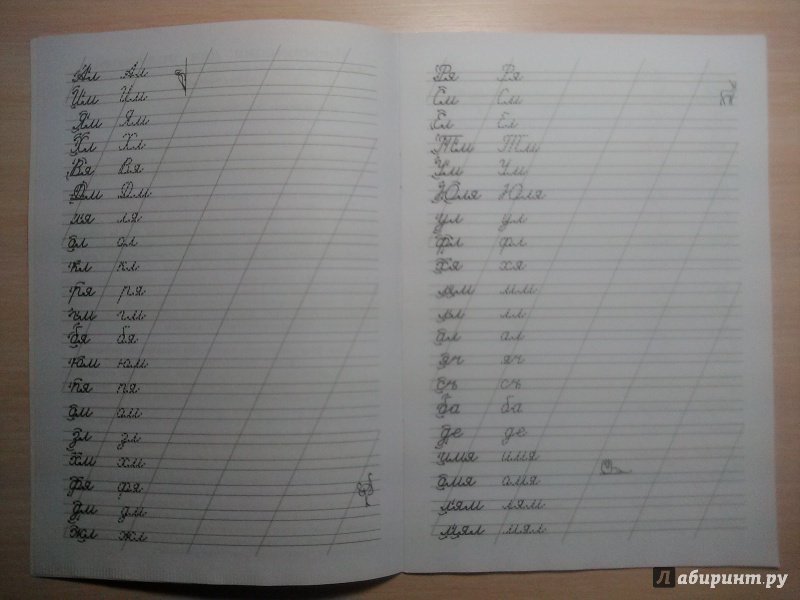 Ал Ал
Им Им
Ям Ям
Хл Хл
Вя Вя
Дм Дм
ля ля
ол ол
кл кл
ря ря
гм гм
бя бя
юм юм
пя пя
ом ом
зл зл
хм хм
фя фя
дм дм
жл жл
Ря Ря
См См
Ел Ел
Тм Тм
Ум Ум
Юля Юля
ул ул
фл фл
хя хя
мм мм
лл лл
ал ал
яч яч
съ съ
ба ба
де де
имя имя
омя омя
лям лям
мял мял
Лабиринт.ру